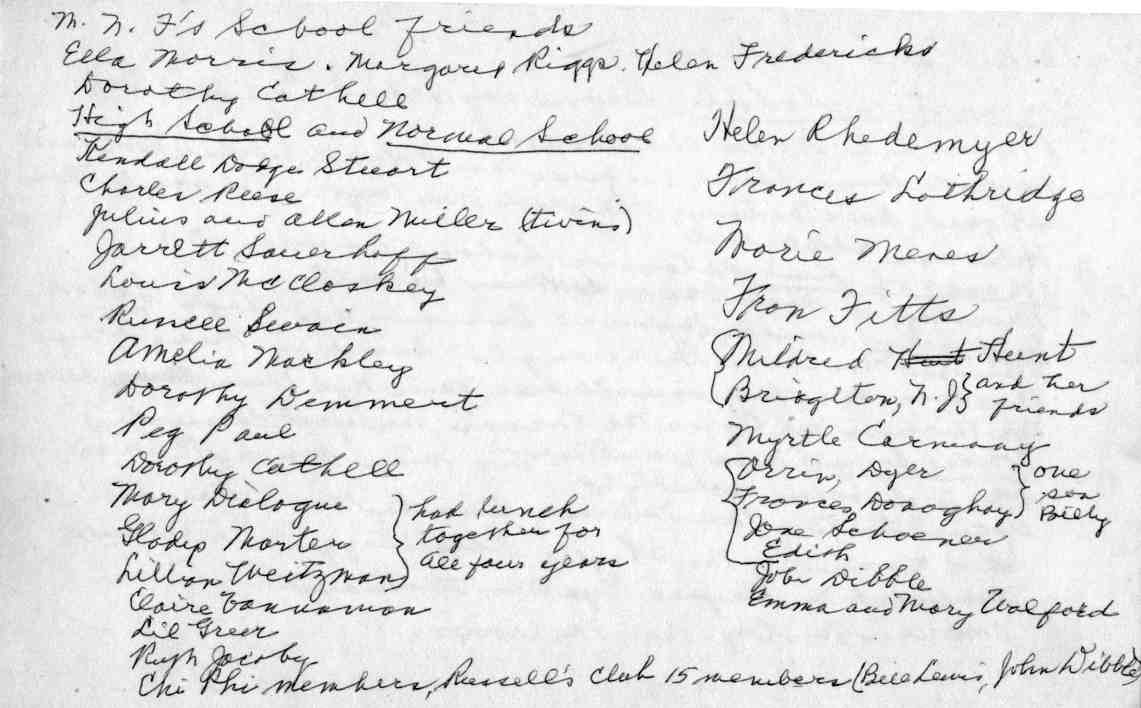 M. N. F's School friends
Ella Morris. Margaret Riggs. Helen Fredericks
Dorothy Cathell
High School and Normal School
Kendall Dodge Stewart
Charles Reese
Julius and Allan Miller (twins)
Jarrett Sauerhoff
Louis McCloskey
Runcell Swain
Amelia Mackley
Dorothy Demmert
Peg Paul
Dorothy Cathell
Mary Dialogue
Gladys Marten
Lillian Weitzman
had lunch
together for
all four years
Claire Vannaman
Lil Greer
Ruth Jacoby
Chi Phi members, Russell's club 15 members (Bill Lewis, John Dibble)
Helen Rhedemyer
Frances Lothridge
Marie Menes
Fran Fitts
Mildred Hunt Hunt
Bridgeton, N.J. and her
friends
Myrtle Carmany
Orrin, Dyer
Frances Donaghay
one
son
Billy
Jane Schoener
Edith
John Dibble
Emma and Mary Walford